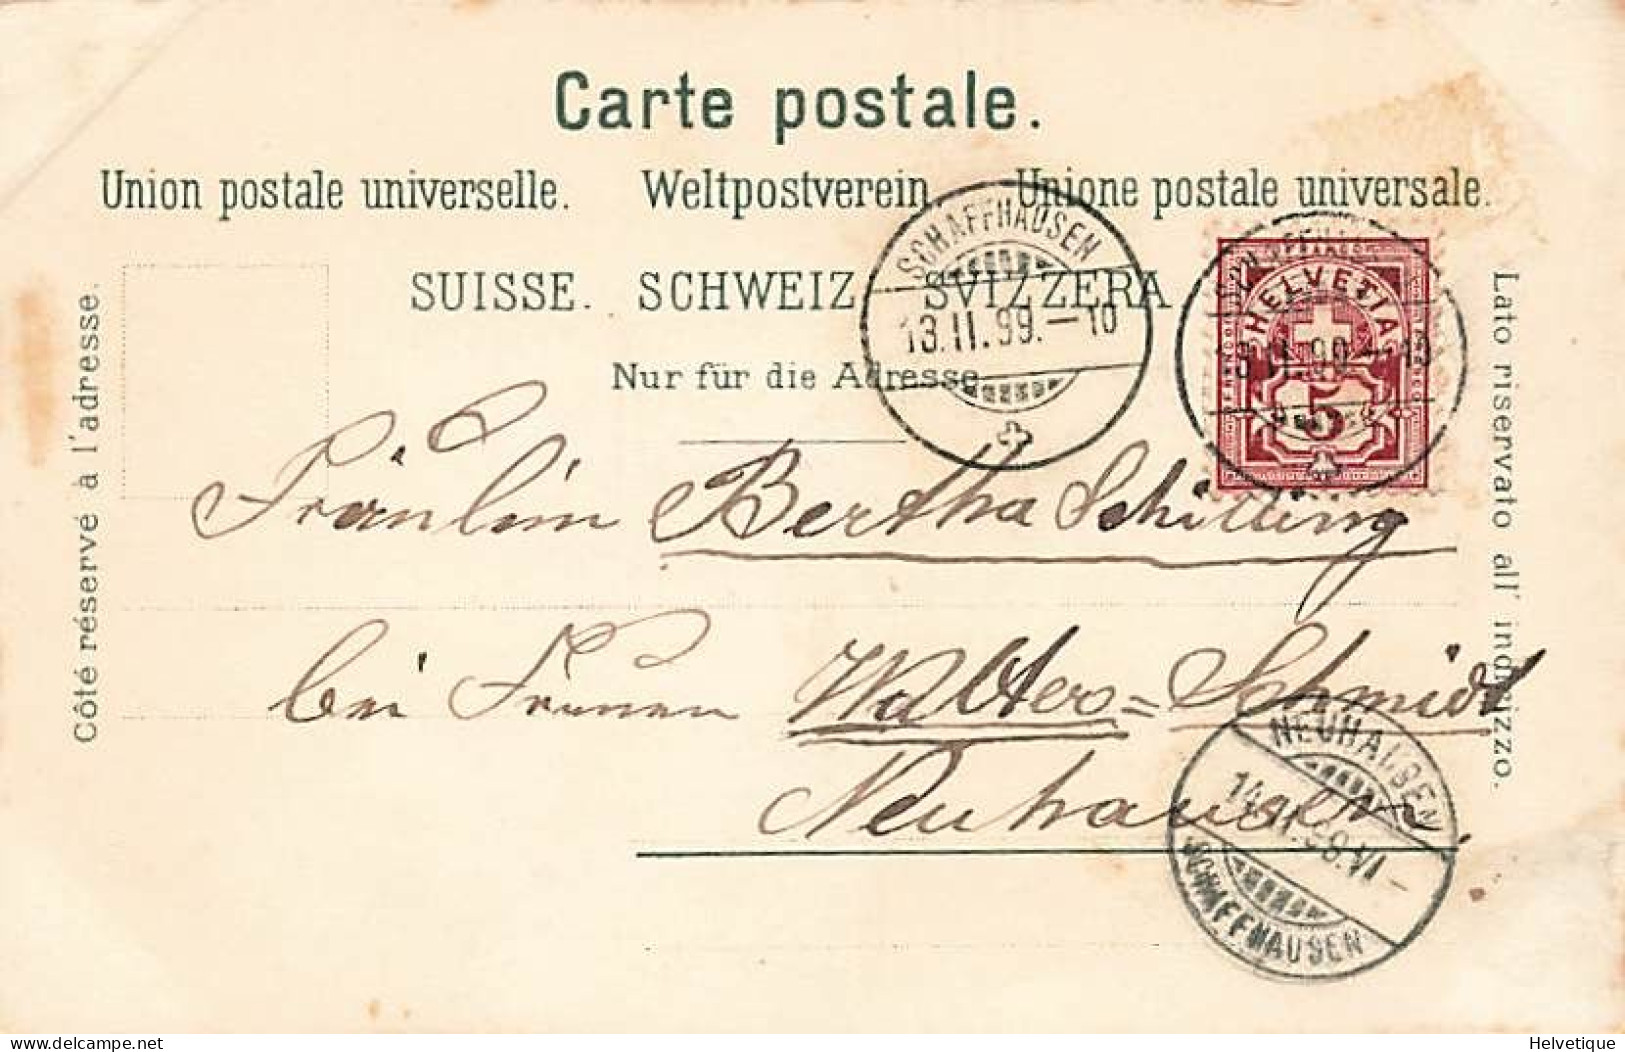 Carte postale.
Union postale universelle. Weltpostverein Unione postale universale.
SUISSE. SCHWEIZ SVIZZERA
Nur für die Adresse
Côté réservé à l'adresse.
Lato riservato all' indirizzo.
SCHAFFHAUSEN
13.II.99.—10
SCHAFFHAUSEN
13.II.99.—10
FRANCO
HELVETIA
5
Fräulein Bertha Schilling
bei Frauen Walters=Schmidt
Neuhausen,
NEUHAUSEN
14.II.99.VI—
SCHAFFHAUSEN
delcampe.net
Helvetique